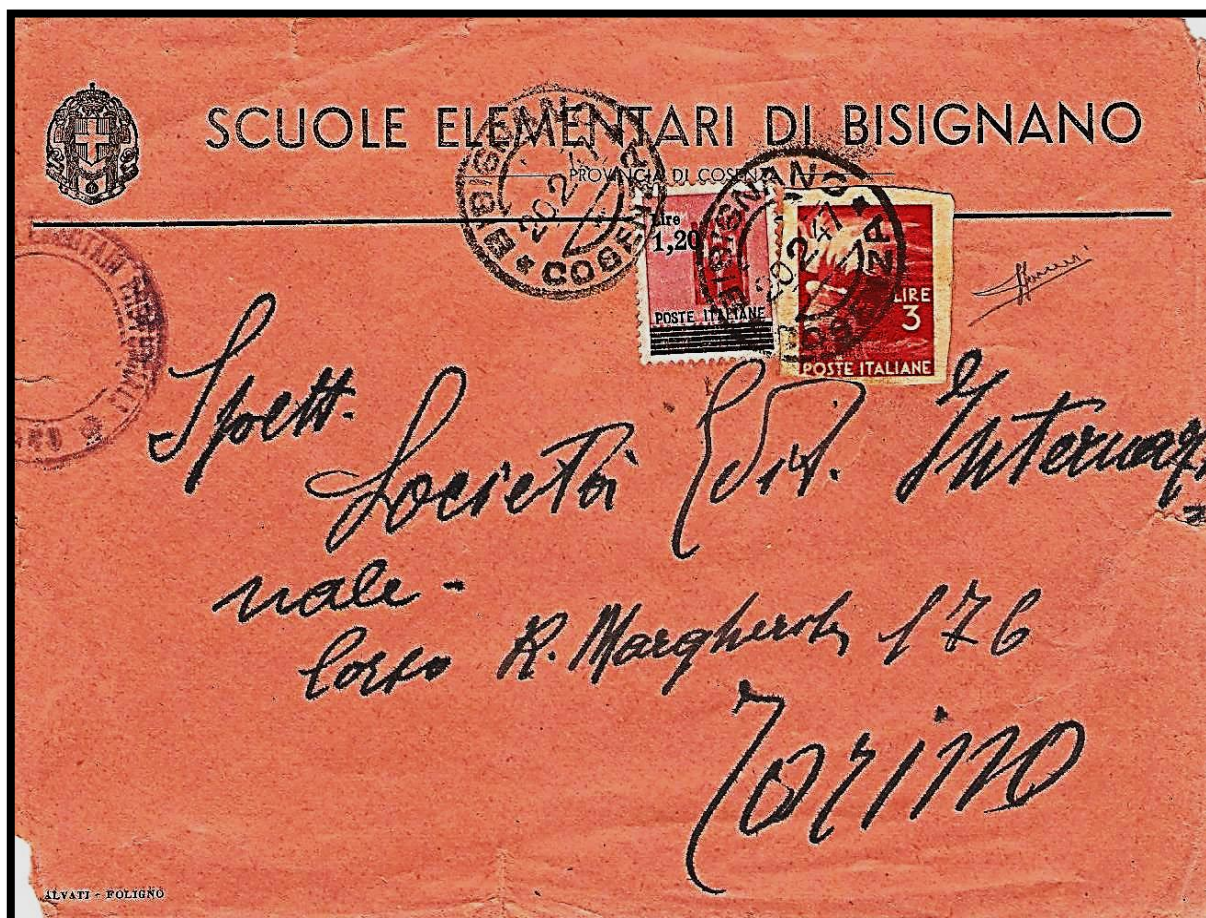 SCUOLE ELEMENTARI DI BISIGNANO
PROVINCIA DI COSENZA
BISIGNANO
20.2.47
* COSENZA *
BISIGNANO
20.2.47
COSENZA *
Lire
1,20
POSTE ITALIANE
LIRE
3
POSTE ITALIANE
Spett.
Società Edit. Internazio
nale -
Corso R. Margherita 176
Torino
ALVATI - FOLIGNO